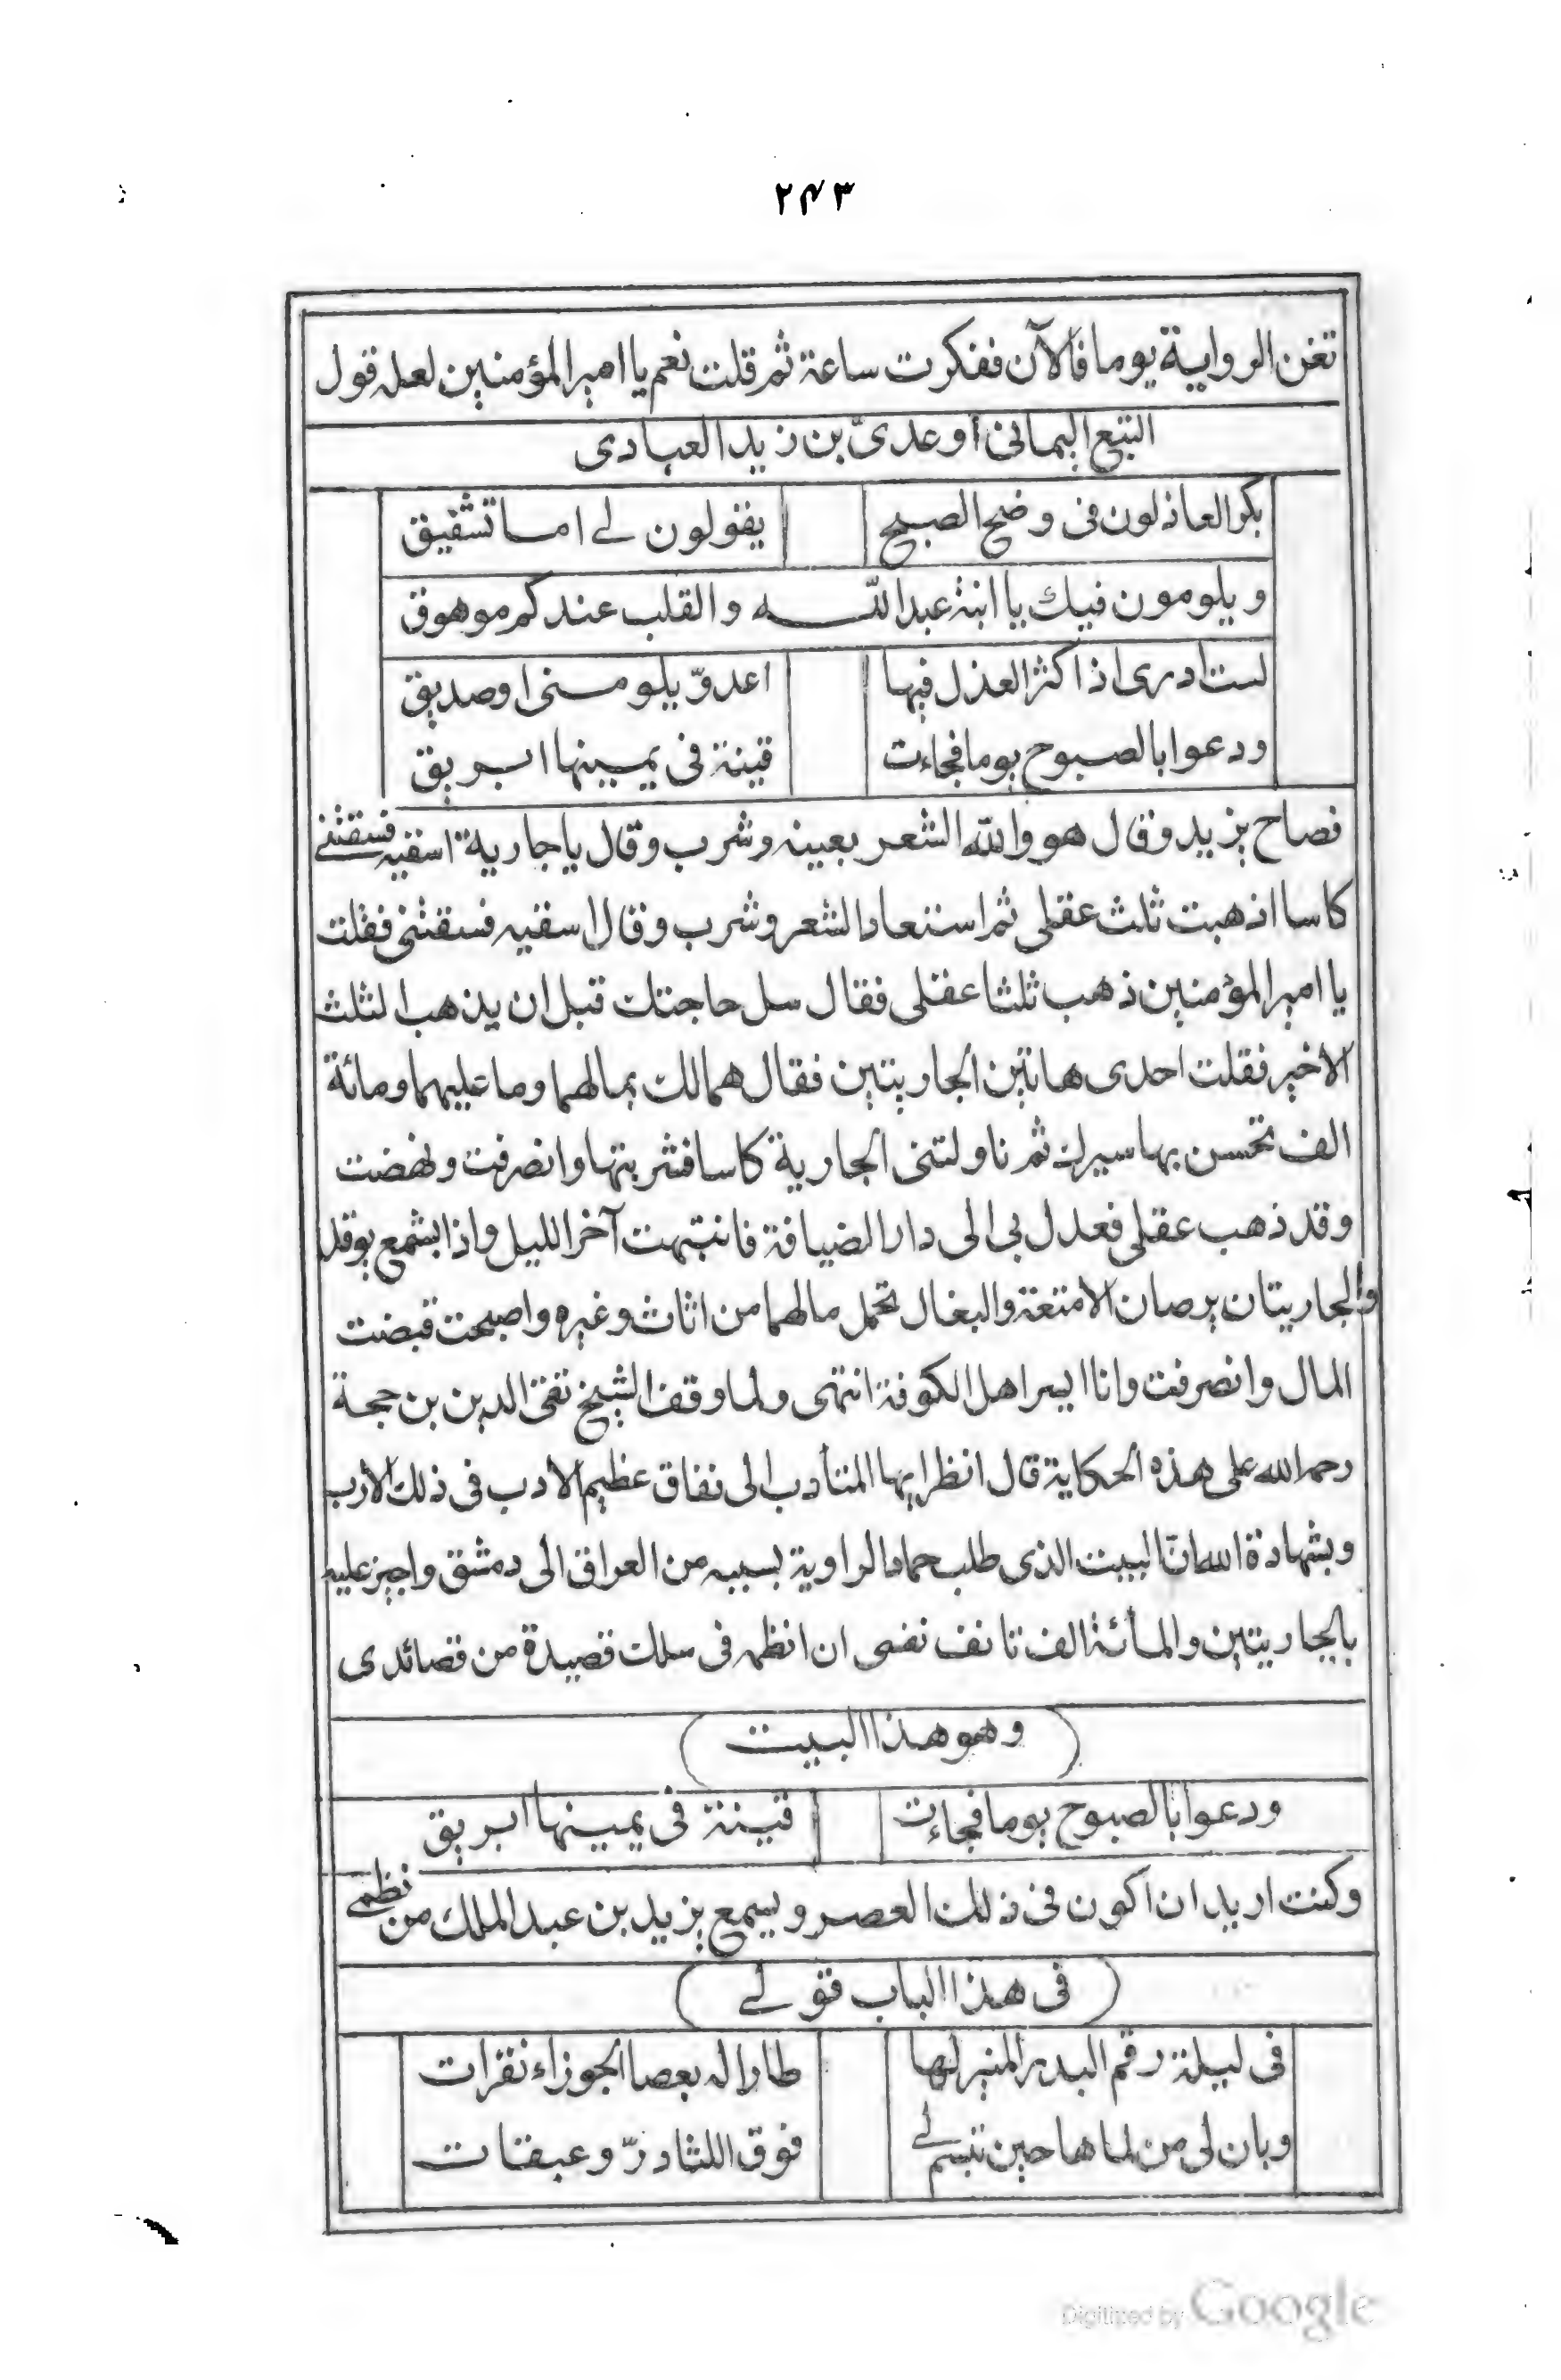 ٢٤٣
تغن الرواية يوما فالآن ففكرت ساعة ثم قلت نعم يا امير المؤمنين لعله قول
التبع اليمانى او عدىّ بن زيد العبادى
بكر العاذلون فى وضح الصبح يقولون لے اما تستفيق
ويلومون فيك يا ابنة عبد اللّه والقلب عندكم موهوق
لست ادرى اذ اكثر العذل فيها اعدوّ يلومنى او صديق
ودعوا بالصبوح يوما فجاءت قينة فى يمينها ابريق
فصاح يزيد وقال هو واللّه الشعر بعينه وشرب وقال يا جارية اسقيه فسقتنے
كاسا اذهبت ثلث عقلى ثم استعاد الشعر وشرب وقال اسقيه فسقتنى فقلت
يا امير المؤمنين ذهب ثلثا عقلى فقال سل حاجتك قبل ان يذهب الثلث
الاخير فقلت احدى هاتين الجاريتين فقال هما لك بما لهما وما عليهما ومائة
الف تحسن بها سيرك ثم ناولتنى الجارية كاسا فشربتها وانصرفت ونهضت
وقد ذهب عقلى فعدل بى الى دار الضيافة فانتبهت آخر الليل واذا بشمع يوقد
والجاريتان يرصان الامتعة والبغال تحمل ما لهما من اثاث وغيره واصبحت قبضت
المال وانصرفت وانا ايسر اهل الكوفة انتهى ولما وقف الشيخ تقى الدين بن حجة
رحمه الله على هذه الحكاية قال انظر ايها المتأدب الى نفاق عظيم الادب فى ذلك الارب
وبشهادة الله انّ البيت الذى طلب حماد الراوية بسببه من العراق الى دمشق واجيز عليه
بالجاريتين والمأئة الف تانف نفسى ان انظمه فى سلك قصيدة من قصائدى
(وهو هذا البيت)
ودعوا بالصبوح يوما فجاءت قينة فى يمينها ابريق
وكنت اريد ان اكون فى ذلك العصر ويسمع يزيد بن عبد الملك من نظمے
(فى هذا الباب قولے)
فى ليلة رقم البدر المنير لها طارا له بعصا الجوزاء نقرات
وبان لى من لماها حين تبسم لے فوق اللثا درّ وعبقات
Digitized by Google